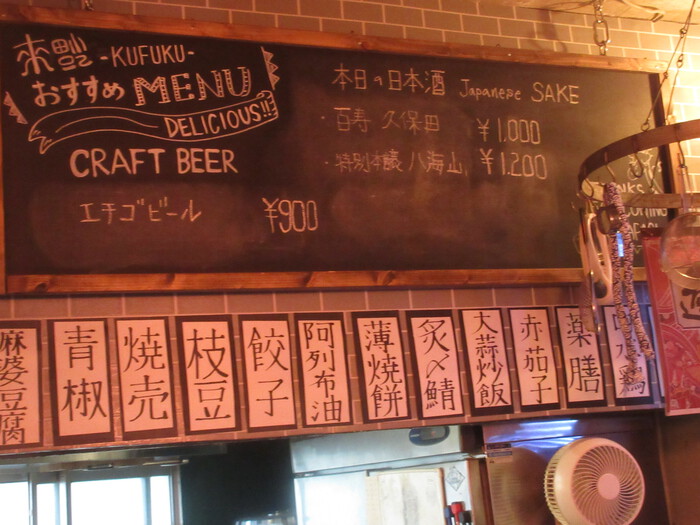 来福 -KUFUKU-
おすすめ MENU
DELICIOUS!!
CRAFT BEER
エチゴビール ¥900
本日の日本酒 Japanese SAKE
・百寿 久保田 ¥1,000
・特別本醸 八海山 ¥1,200
麻婆豆腐
青椒
焼売
枝豆
餃子
阿列布油
薄焼餅
炙〆鯖
大蒜炒飯
赤茄子
薬膳